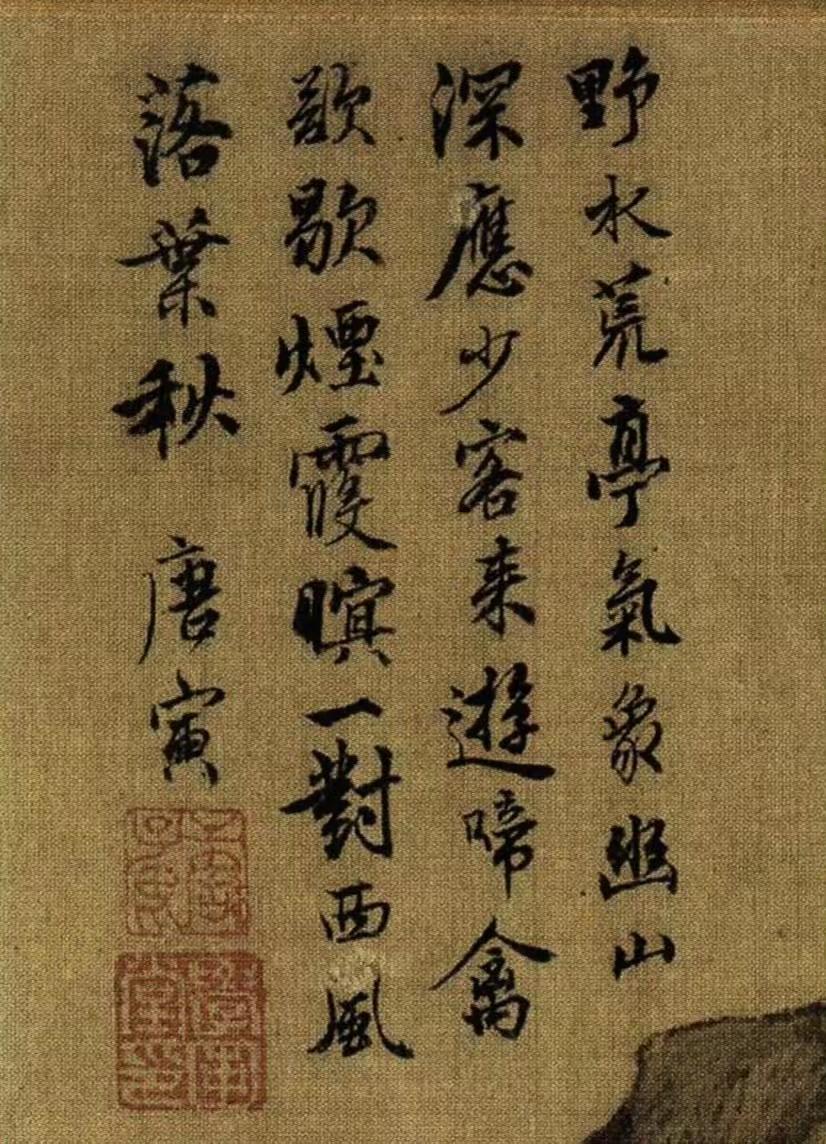 野水荒亭氣象幽山
深應少客来遊啼禽
歇煙霞暝一對西風
落葉秋 唐寅